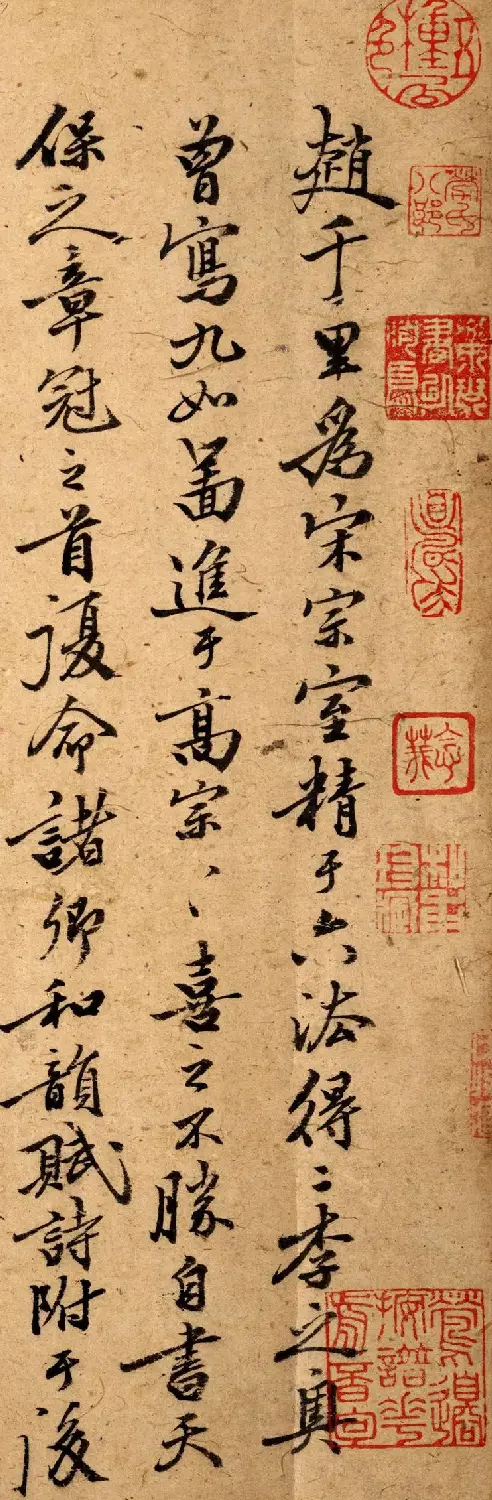 趙千里爲宋宗室精于六法得二李之奧
曾寫九如啚進于高宗、喜之不勝自書天
保之章冠之首復命諸卿和韻賦詩附于後